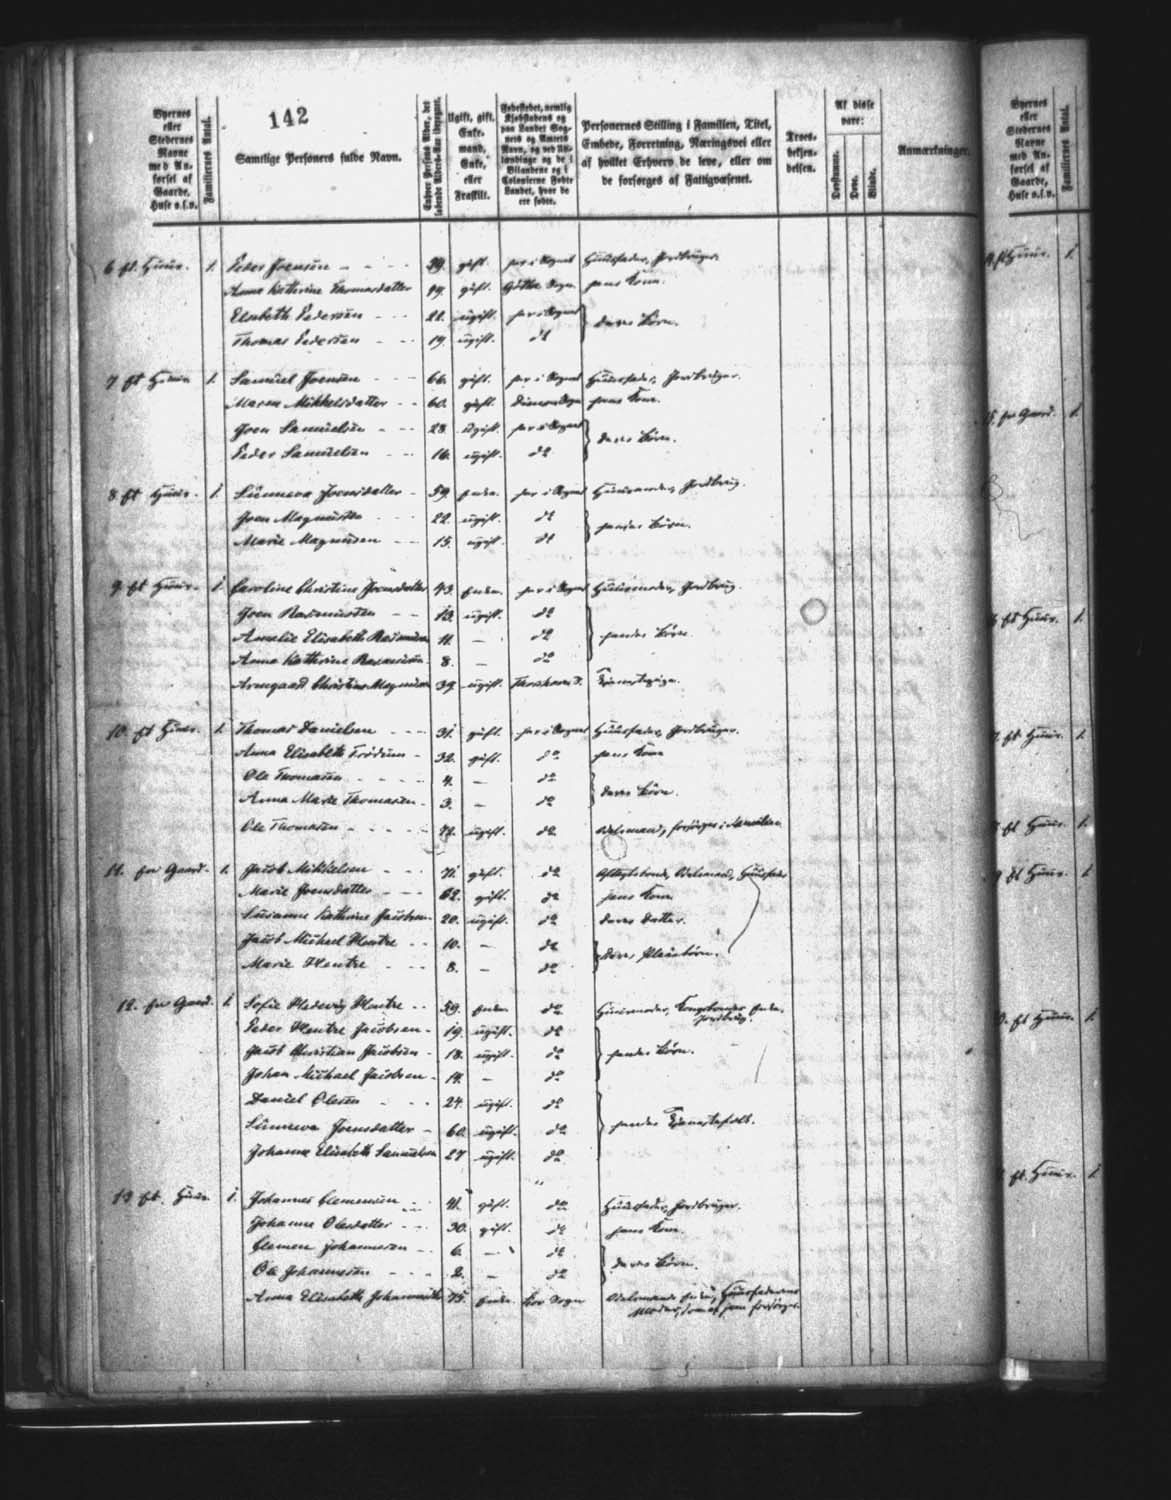 142
Byernes eller Stedernes Navne med Anførsel af Gaarde, Huse o.s.v.
Familiernes Antal.
Samtlige Personers fulde Navn.
Enhver Persons Alder, det løbende Alders-Aar iberegnet.
Ugift, gift, Enkemand, Enke, eller Fraskilt.
Fødestedet, nemlig Kjøbstadens og paa Landet Sognets og Amtets Navn, og ved Udlændinge og de i Bilandene og i Colonierne Fødte Landet, hvor de ere fødte.
Personernes Stilling i Familien, Titel, Embede, Forretning, Næringsvei eller af hvilket Erhverv de leve, eller om de forsørges af Fattigvæsenet.
Troesbekjendelsen.
Af disse vare:
Døvstumme.
Døve.
Blinde.
Anmærkninger.
6 ft. Huus. 1. Peder Joensen gift. her i Sognet Huusfader, Jordbruger.
Anna Kathrine Thomasdatter gift. Sogn hans Kone.
Elsebeth Pedersen 22. ugift. her i Sognet } deres Børn.
Thomas Pedersen 19. ugift. do
7 ft Huus 1. Samuel Joensen 66. gift. her i Sognet Huusfader, Jordbruger.
Maren Mikkelsdatter 60. gift. Sogn hans Kone.
Joen Samuelsen 28. ugift. her i Sognet } deres Børn.
Peder Samuelsen 16. ugift. do
8 ft Huus. 1. Sunneva Joensdatter 59. Enke. her i Sognet Huusmoder, Jordbrug.
Joen Magnussen 22. ugift. do } hendes Børn.
Marie Magnusen 15. ugift. do
9 ft Huus. 1 Caroline Christine Joensdatter 43. Enke. her i Sognet Huusmoder, Jordbrug.
Joen Rasmussen 13. ugift. do
Amelie Elisabeth Rasmussen 11. — do } hendes Børn
Anna Kathrine Rasmussen 8. — do
Armgaard Christine Magnussen 39. ugift. Thorshavn Tjenestepige.
10. ft Huus. 1. Thomas Danielsen 31. gift. her i Sognet Huusfader, Jordbruger.
Anna Elisabeth 32. gift. do hans Kone
Ole Thomasen 4. — do } deres Børn.
Anna Marie Thomasen 3. — do
Ole Thomasen ugift. do Odelsmand, forsørges i Familien
11. fra Gaard. 1. Jacob Mikkelsen 71. gift. do Odelsmand, Huusfader
Marie Joensdatter 62. gift. do hans Kone
Susanne Kathrine Jacobsen 20. ugift. do deres Datter.
Jacob Michael Hentze 10. — do } deres Pleiebørn.
Marie Hentze 8. — do
12. fra Gaard. 1 Sofie Hedevig Hentze 59. Enke. do Huusmoder, Kongsbondes Enke, Jordbrug.
Peder Hentze Jacobsen 19. ugift. do } hendes Børn.
Jacob Christian Jacobsen 18. ugift. do
Johan Michael Jacobsen 14. — do
Daniel Olesen 24. ugift. do
Sunneva Joensdatter 60. ugift. do } hendes Tjenestefolk.
Johanne Elisabeth Samuelsen 27 ugift. do
13 ft. Huus 1. Johannes Clemensen 41. gift. do Huusfader, Jordbruger.
Johanne Olesdatter 30. gift. do hans Kone.
Clemen Johannesen 6. — do } deres Børn.
Ole Johannesen 2. — do
Anna Elisabeth 75. Enke. Sogn Odelsmands Enke, Huusfaderens Moder, som af ham forsørges.
Byernes eller Stedernes Navne med Anførsel af Gaarde, Huse o.s.v.
Familiernes Antal.
ft Huus. 1.
fra Gaard. 1.
ft Huus. 1.
ft Huus. 1.
ft Huus. 1.
ft Huus. 1
ft Huus. 1
ft. Huus. 1